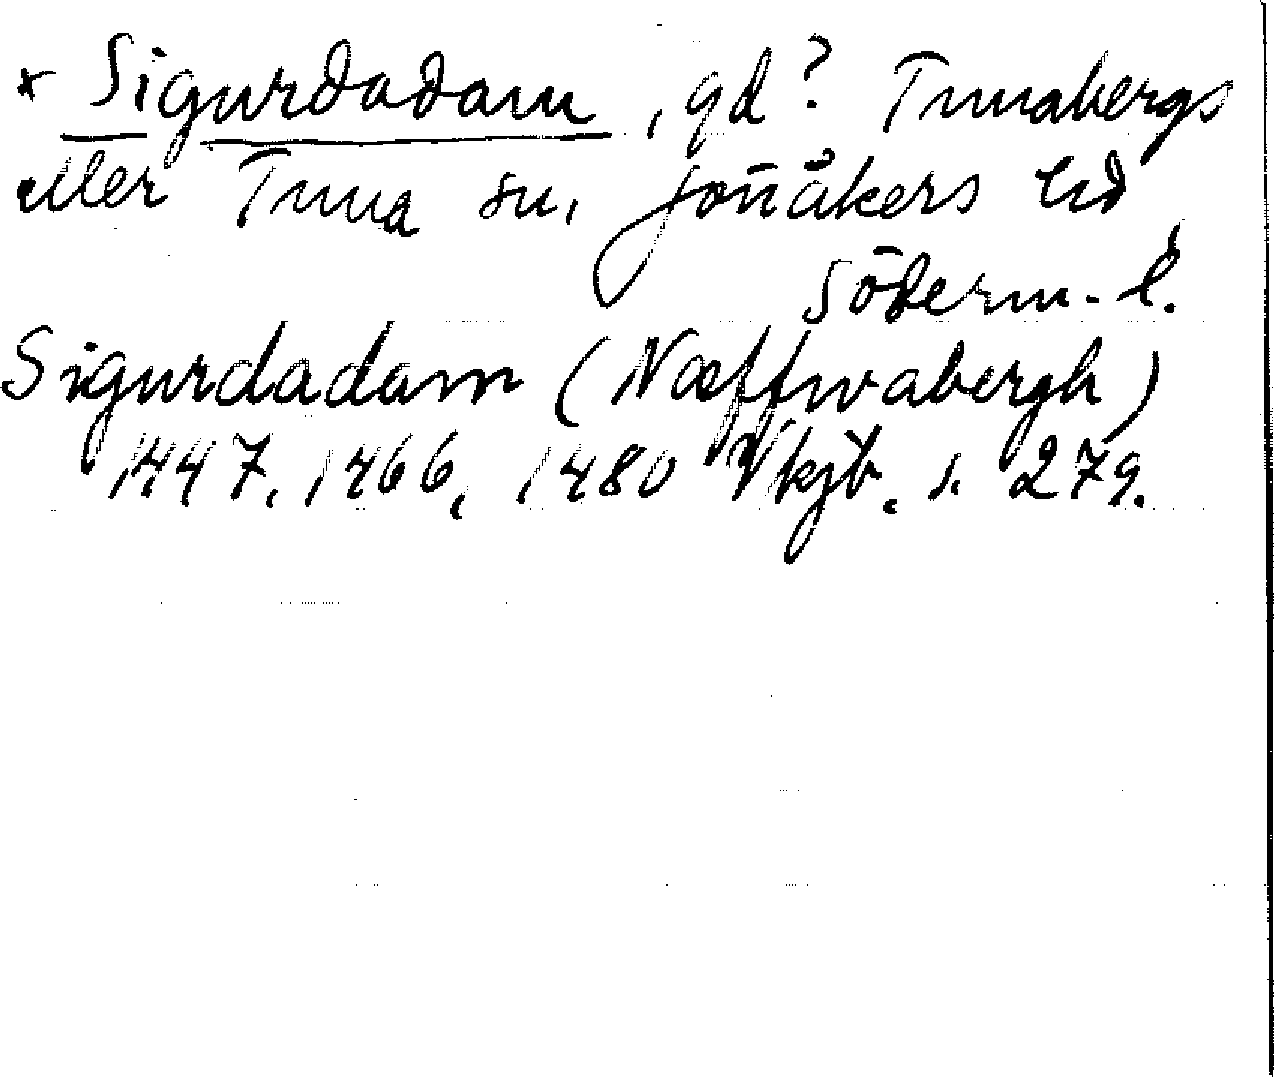 * Sigurdadam, gd? Tunabergs
eller Tuna sn, Jönåkers hd,
Söderm. l.
Sigurdadam (Næffwabergh)
1447, 1466, 1480 Vkjb. s. 279.